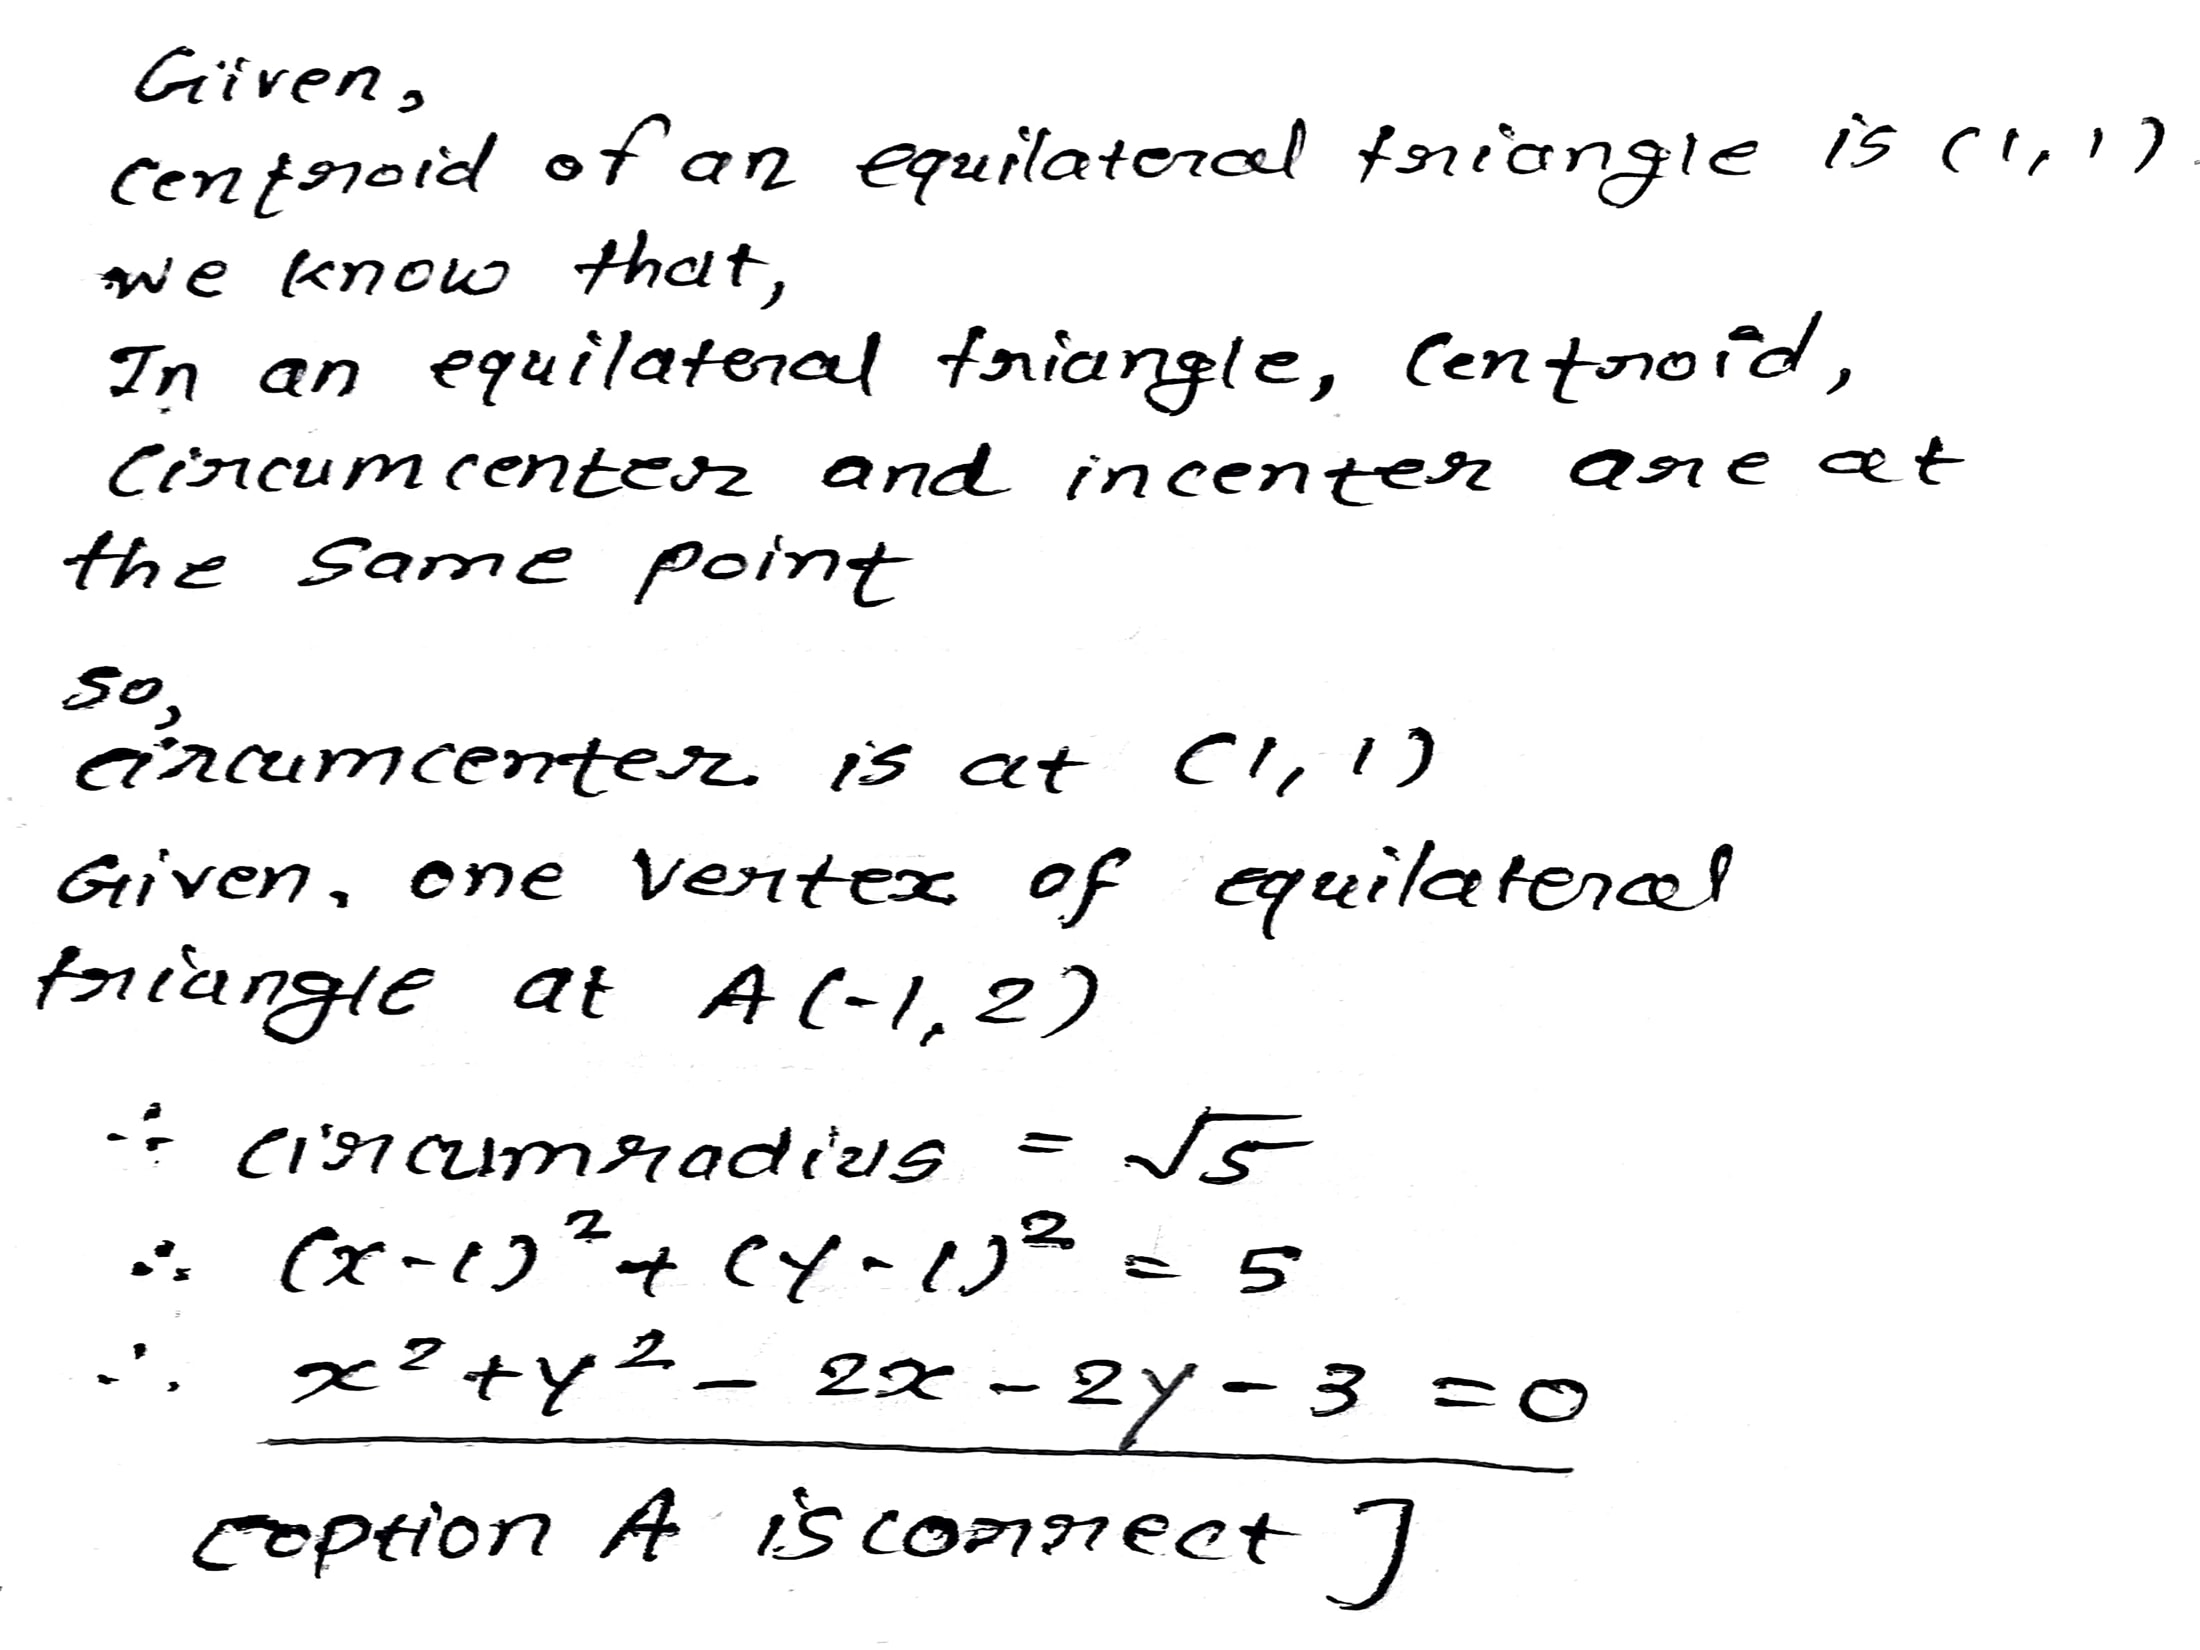 Given,
Centroid of an equilateral triangle is (1, 1).
we know that,
In an equilateral triangle, Centroid,
Circumcenter and incenter are at
the same point
so,
circumcenter is at (1, 1)
Given, one vertex of equilateral
triangle at A(-1, 2)
∴ circumradius = √5
∴ (x-1)² + (y-1)² = 5
∴ x² + y² - 2x - 2y - 3 = 0
[option A is correct]